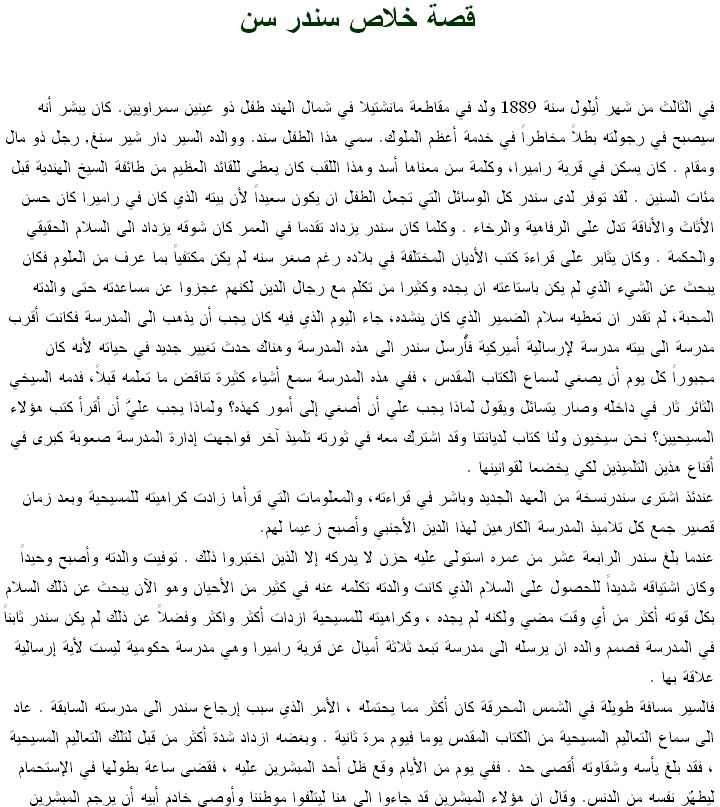 قصة خلاص سندر سن
في الثالث من شهر أيلول سنة 1889 ولد في مقاطعة مانشتيلا في شمال الهند طفل ذو عينين سمراويين. كان يبشر أنه
سيصبح في رجولته بطلاً مخاطراً في خدمة أعظم الملوك. سمي هذا الطفل سند. ووالده السير دار شير سنغ, رجل ذو مال
ومقام . كان يسكن في قرية راميرا، وكلمة سن معناها أسد وهذا اللقب كان يعطى للقائد العظيم من طائفة السيخ الهندية قبل
مئات السنين . لقد توفر لدى سندر كل الوسائل التي تجعل الطفل ان يكون سعيداً لأن بيته الذي كان في راميرا كان حسن
الأثاث والأناقة تدل على الرفاهية والرخاء . وكلما كان سندر يزداد تقدما في العمر كان شوقه يزداد الى السلام الحقيقي
والحكمة . وكان يثابر على قراءة كتب الأديان المختلفة في بلاده رغم صغر سنه لم يكن مكتفياً بما عرف من العلوم فكان
يبحث عن الشيء الذي لم يكن باستاعته ان يجده وكثيرا من تكلم مع رجال الدين لكنهم عجزوا عن مساعدته حتى والدته
المحبة، لم تقدر ان تعطيه سلام الضمير الذي كان ينشده، جاء اليوم الذي فيه كان يجب أن يذهب الى المدرسة فكانت أقرب
مدرسة الى بيته مدرسة لإرسالية أميركية فأُرسل سندر الى هذه المدرسة وهناك حدث تغيير جديد في حياته لأنه كان
مجبوراً كل يوم أن يصغي لسماع الكتاب المقدس ، ففي هذه المدرسة سمع أشياء كثيرة تناقض ما تعلمه قبلاً، فدمه السيخي
الثائر ثار في داخله وصار يتسائل ويقول لماذا يجب علي أن أصغي إلى أمور كهذه؟ ولماذا يجب عليّ أن أقرأ كتب هؤلاء
المسيحيين؟ نحن سيخيون ولنا كتاب لديانتنا وقد اشترك معه في ثورته تلميذ آخر فواجهت إدارة المدرسة صعوبة كبرى في
أقناع هذين التلميذين لكي يخضعا لقوانينها .
عندئذ اشترى سندرنسخة من العهد الجديد وباشر في قراءته، والمعلومات التي قرأها زادت كراهيته للمسيحية وبعد زمان
قصير جمع كل تلاميذ المدرسة الكارهين لهذا الدين الأجنبي وأصبح زعيما لهم.
عندما بلغ سندر الرابعة عشر من عمره استولى عليه حزن لا يدركه إلا الذين اختبروا ذلك . توفيت والدته وأصبح وحيداً
وكان اشتياقه شديداً للحصول على السلام الذي كانت والدته تكلمه عنه في كثير من الأحيان وهو الآن يبحث عن ذلك السلام
بكل قوته أكثر من أي وقت مضي ولكنه لم يجده ، وكراهيته للمسيحية ازدات أكثر واكثر وفضلاً عن ذلك لم يكن سندر ثابتاً
في المدرسة فصمم والده ان يرسله الى مدرسة تبعد ثلاثة أميال عن قرية راميرا وهي مدرسة حكومية ليست لأية إرسالية
علاقة بها .
فالسير مسافة طويلة في الشمس المحرقة كان أكثر مما يحتمله ، الأمر الذي سبب إرجاع سندر الى مدرسته السابقة . عاد
الى سماع التعاليم المسيحية من الكتاب المقدس يوما فيوم مرة ثانية . وبغضه ازداد شدة أكثر من قبل لتلك التعاليم المسيحية
، فقد بلغ يأسه وشقاوته أقصى حد . ففي يوم من الأيام وقع ظل أحد المبشرين عليه ، فقضى ساعة بطولها في الإستحمام
ليطهّر نفسه من الدنس. وقال ان هؤلاء المبشرين قد جاءوا الى هنا ليتلفوا موطننا وأوصي خادم أبيه أن يرجم المبشرين